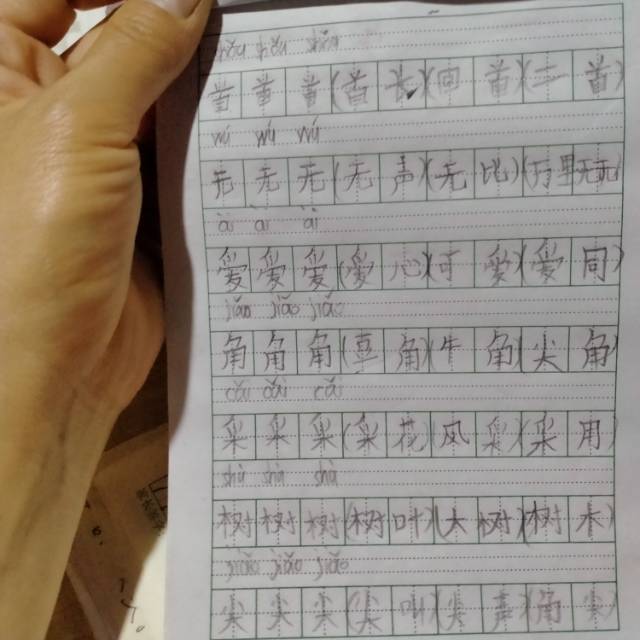 shǒu shǒu shǒu
首 首 首 (首 长) (回 首) (一 首)
wú wú wú
无 无 无 (无 声) (无 比) (万里无云)
ài ài ài
爱 爱 爱 (爱 心) (可 爱) (爱 同)
jiǎo jiǎo jiǎo
角 角 角 (豆 角) (牛 角) (尖 角)
cǎi cǎi cǎi
采 采 采 (采 花) 风 采) (采 用)
shù shù shù
树 树 树 (树 叶) (大 树) (树 木)
尖 尖 尖 (尖 叫) (尖 声) (角 尖)